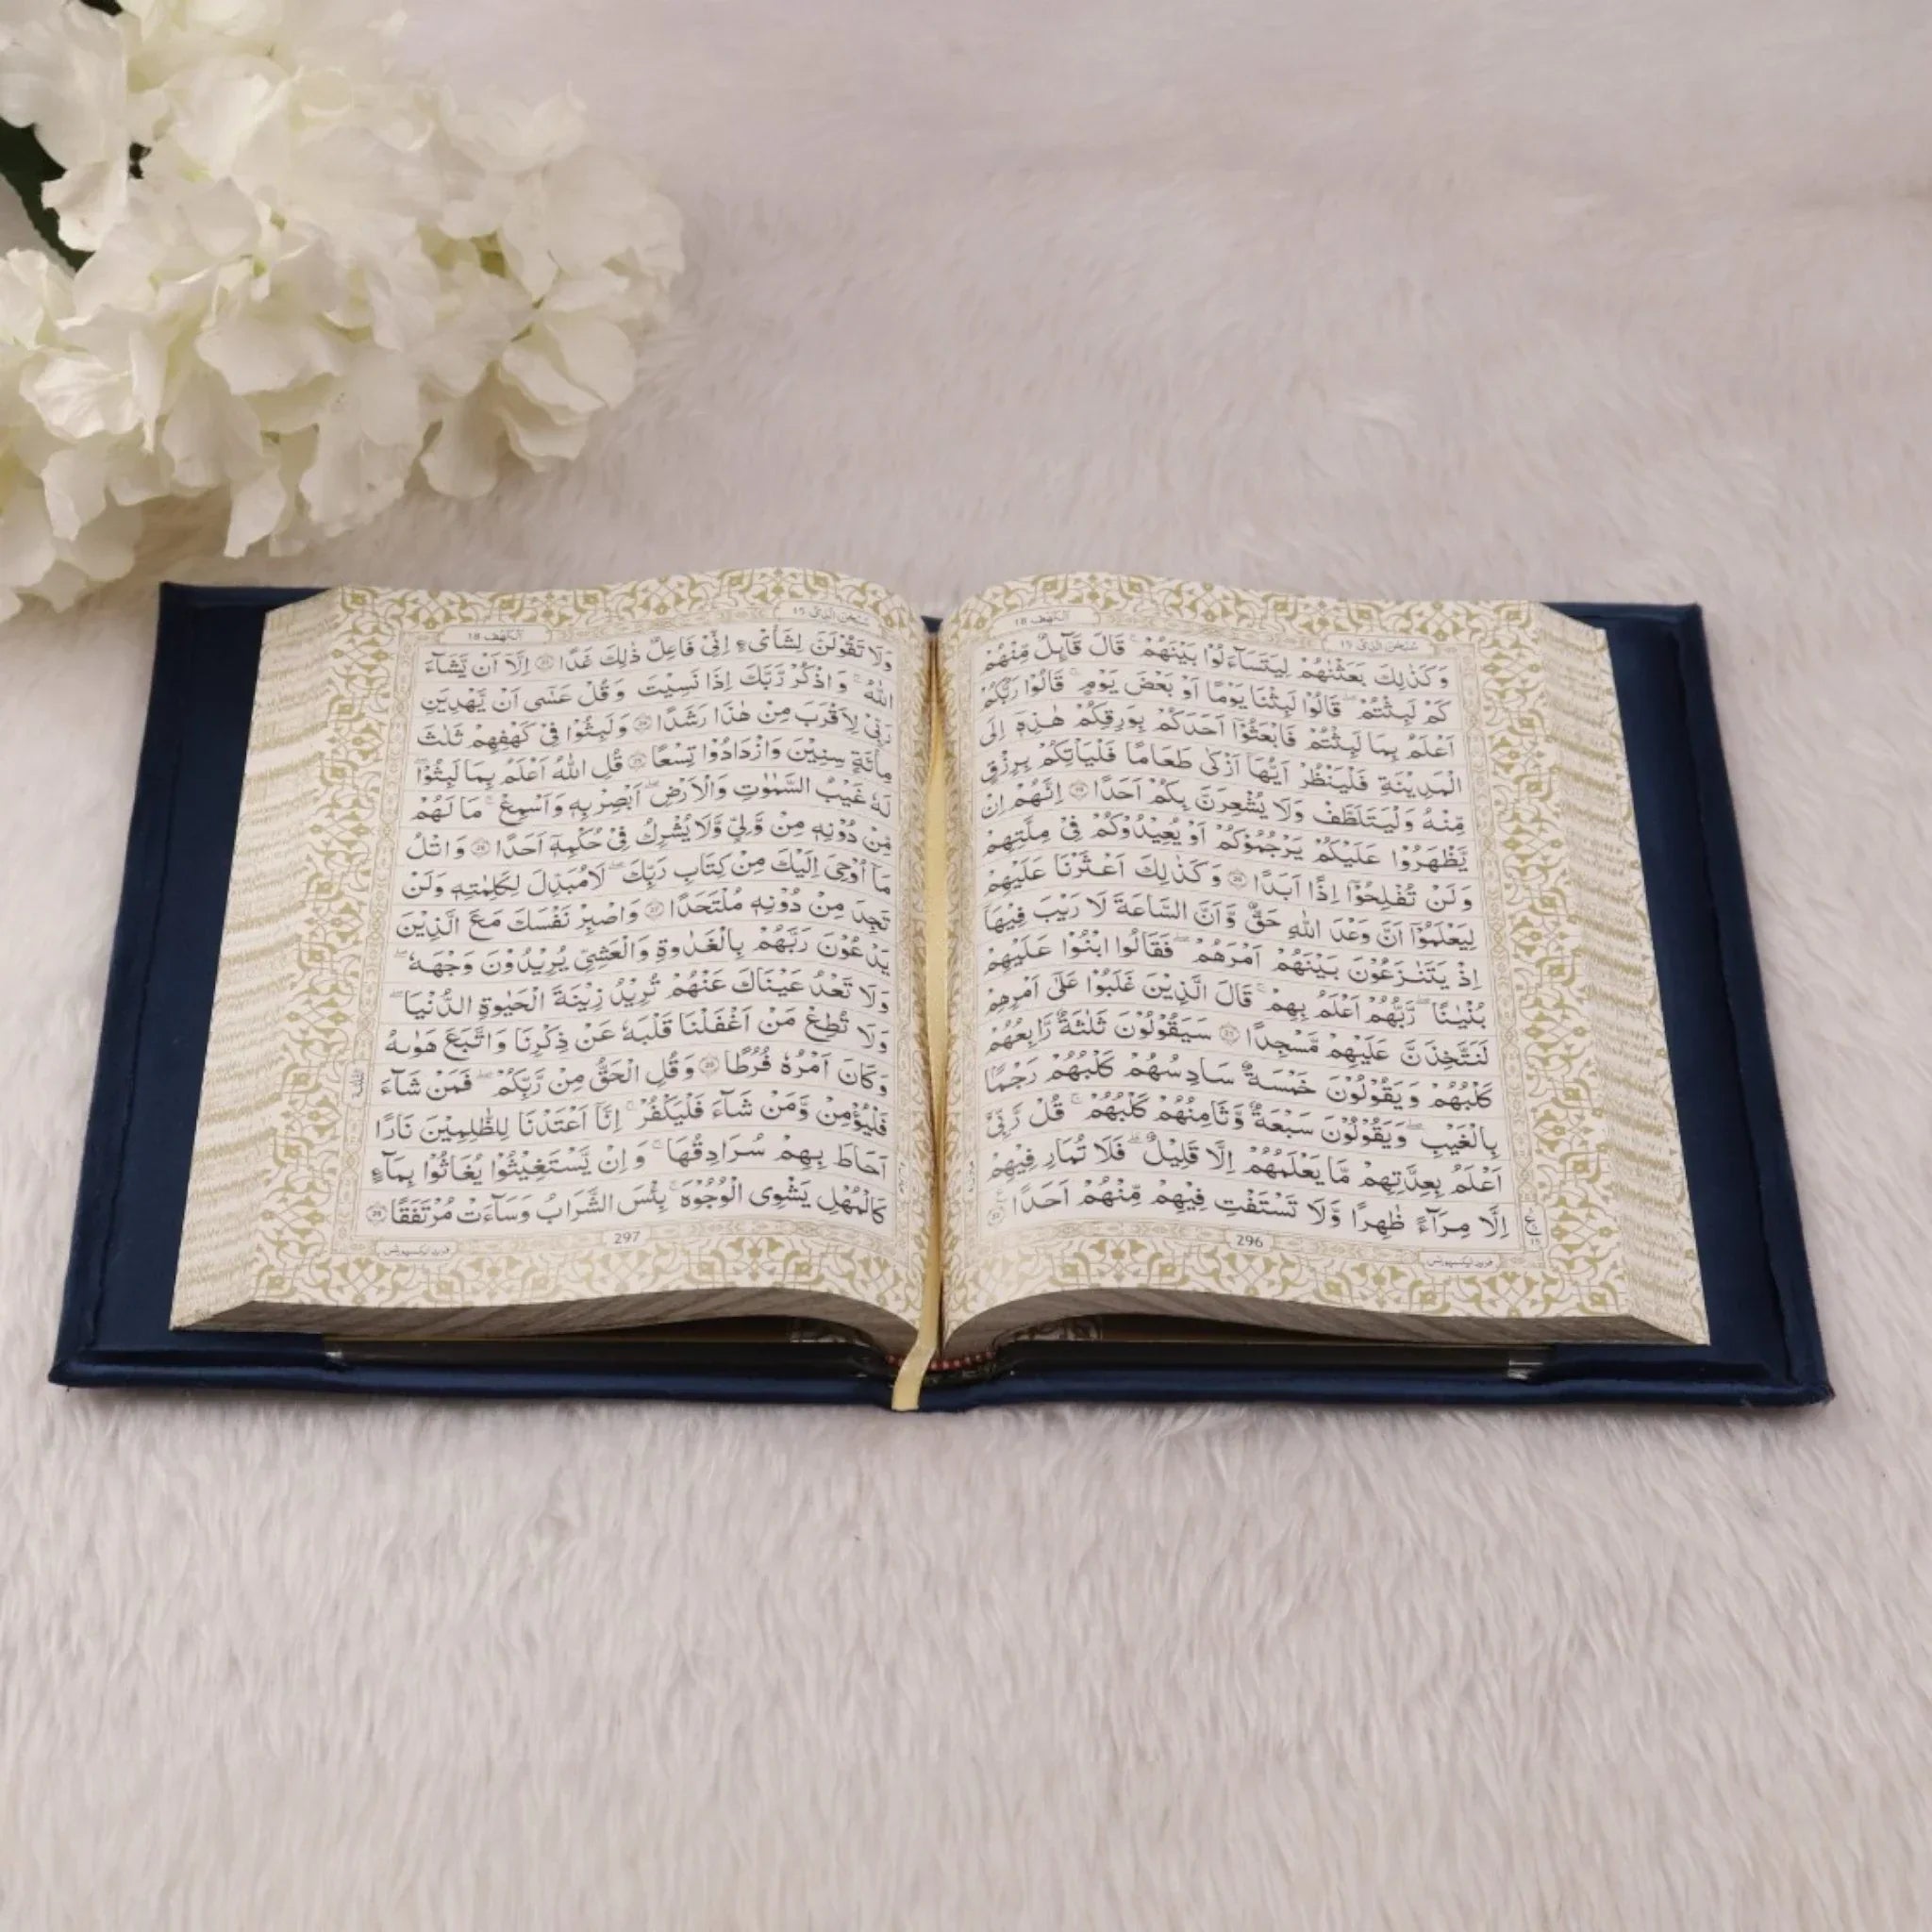 الكهف 18
سبحن الذي 15
وَكَذٰلِكَ بَعَثْنٰهُمْ لِيَتَسَآءَلُوْا بَيْنَهُمْ ؕ قَالَ قَآئِلٌ مِّنْهُمْ
كَمْ لَبِثْتُمْ ؕ قَالُوْا لَبِثْنَا يَوْمًا اَوْ بَعْضَ يَوْمٍ ؕ قَالُوْا رَبُّكُمْ
اَعْلَمُ بِمَا لَبِثْتُمْ فَابْعَثُوْۤا اَحَدَكُمْ بِوَرِقِكُمْ هٰذِهٖۤ اِلَى
الْمَدِيْنَةِ فَلْيَنْظُرْ اَيُّهَاۤ اَزْكٰى طَعَامًا فَلْيَاْتِكُمْ بِرِزْقٍ
مِّنْهُ وَلْيَتَلَطَّفْ وَلَا يُشْعِرَنَّ بِكُمْ اَحَدًا ۝ اِنَّهُمْ اِنْ
يَّظْهَرُوْا عَلَيْكُمْ يَرْجُمُوْكُمْ اَوْ يُعِيْدُوْكُمْ فِيْ مِلَّتِهِمْ
وَلَنْ تُفْلِحُوْۤا اِذًا اَبَدًا ۝ وَكَذٰلِكَ اَعْثَرْنَا عَلَيْهِمْ
لِيَعْلَمُوْۤا اَنَّ وَعْدَ اللّٰهِ حَقٌّ وَّاَنَّ السَّاعَةَ لَا رَيْبَ فِيْهَا
اِذْ يَتَنَازَعُوْنَ بَيْنَهُمْ اَمْرَهُمْ فَقَالُوا ابْنُوْا عَلَيْهِمْ
بُنْيَانًا ؕ رَبُّهُمْ اَعْلَمُ بِهِمْ ؕ قَالَ الَّذِيْنَ غَلَبُوْا عَلٰٓى اَمْرِهِمْ
لَنَتَّخِذَنَّ عَلَيْهِمْ مَّسْجِدًا ۝ سَيَقُوْلُوْنَ ثَلٰثَةٌ رَّابِعُهُمْ
كَلْبُهُمْ وَيَقُوْلُوْنَ خَمْسَةٌ سَادِسُهُمْ كَلْبُهُمْ رَجْمًا
بِالْغَيْبِ وَيَقُوْلُوْنَ سَبْعَةٌ وَّثَامِنُهُمْ كَلْبُهُمْ ؕ قُلْ رَّبِّيْۤ
اَعْلَمُ بِعِدَّتِهِمْ مَّا يَعْلَمُهُمْ اِلَّا قَلِيْلٌ فَلَا تُمَارِ فِيْهِمْ
اِلَّا مِرَآءً ظَاهِرًا وَّلَا تَسْتَفْتِ فِيْهِمْ مِّنْهُمْ اَحَدًا ۝
296
الكهف 18
سبحن الذي 15
وَلَا تَقُوْلَنَّ لِشَا۟يْءٍ اِنِّيْ فَاعِلٌ ذٰلِكَ غَدًا ۝ اِلَّاۤ اَنْ يَّشَآءَ
اللّٰهُ وَاذْكُرْ رَّبَّكَ اِذَا نَسِيْتَ وَقُلْ عَسٰۤى اَنْ يَّهْدِيَنِ
رَبِّيْ لِاَقْرَبَ مِنْ هٰذَا رَشَدًا ۝ وَلَبِثُوْا فِيْ كَهْفِهِمْ ثَلٰثَ
مِائَةٍ سِنِيْنَ وَازْدَادُوْا تِسْعًا ۝ قُلِ اللّٰهُ اَعْلَمُ بِمَا لَبِثُوْا
لَهٗ غَيْبُ السَّمٰوٰتِ وَالْاَرْضِ اَبْصِرْ بِهٖ وَاَسْمِعْ مَا لَهُمْ
مِّنْ دُوْنِهٖ مِنْ وَّلِيٍّ وَّلَا يُشْرِكُ فِيْ حُكْمِهٖۤ اَحَدًا ۝ وَاتْلُ
مَاۤ اُوْحِيَ اِلَيْكَ مِنْ كِتَابِ رَبِّكَ لَا مُبَدِّلَ لِكَلِمٰتِهٖ وَلَنْ
تَجِدَ مِنْ دُوْنِهٖ مُلْتَحَدًا ۝ وَاصْبِرْ نَفْسَكَ مَعَ الَّذِيْنَ
يَدْعُوْنَ رَبَّهُمْ بِالْغَدٰوةِ وَالْعَشِيِّ يُرِيْدُوْنَ وَجْهَهٗ
وَلَا تَعْدُ عَيْنَاكَ عَنْهُمْ تُرِيْدُ زِيْنَةَ الْحَيٰوةِ الدُّنْيَا
وَلَا تُطِعْ مَنْ اَغْفَلْنَا قَلْبَهٗ عَنْ ذِكْرِنَا وَاتَّبَعَ هَوٰىهُ
وَكَانَ اَمْرُهٗ فُرُطًا ۝ وَقُلِ الْحَقُّ مِنْ رَّبِّكُمْ فَمَنْ شَآءَ
فَلْيُؤْمِنْ وَّمَنْ شَآءَ فَلْيَكْفُرْ اِنَّاۤ اَعْتَدْنَا لِلظّٰلِمِيْنَ نَارًا
اَحَاطَ بِهِمْ سُرَادِقُهَا وَاِنْ يَّسْتَغِيْثُوْا يُغَاثُوْا بِمَآءٍ
كَالْمُهْلِ يَشْوِى الْوُجُوْهَ بِئْسَ الشَّرَابُ وَسَآءَتْ مُرْتَفَقًا ۝
297